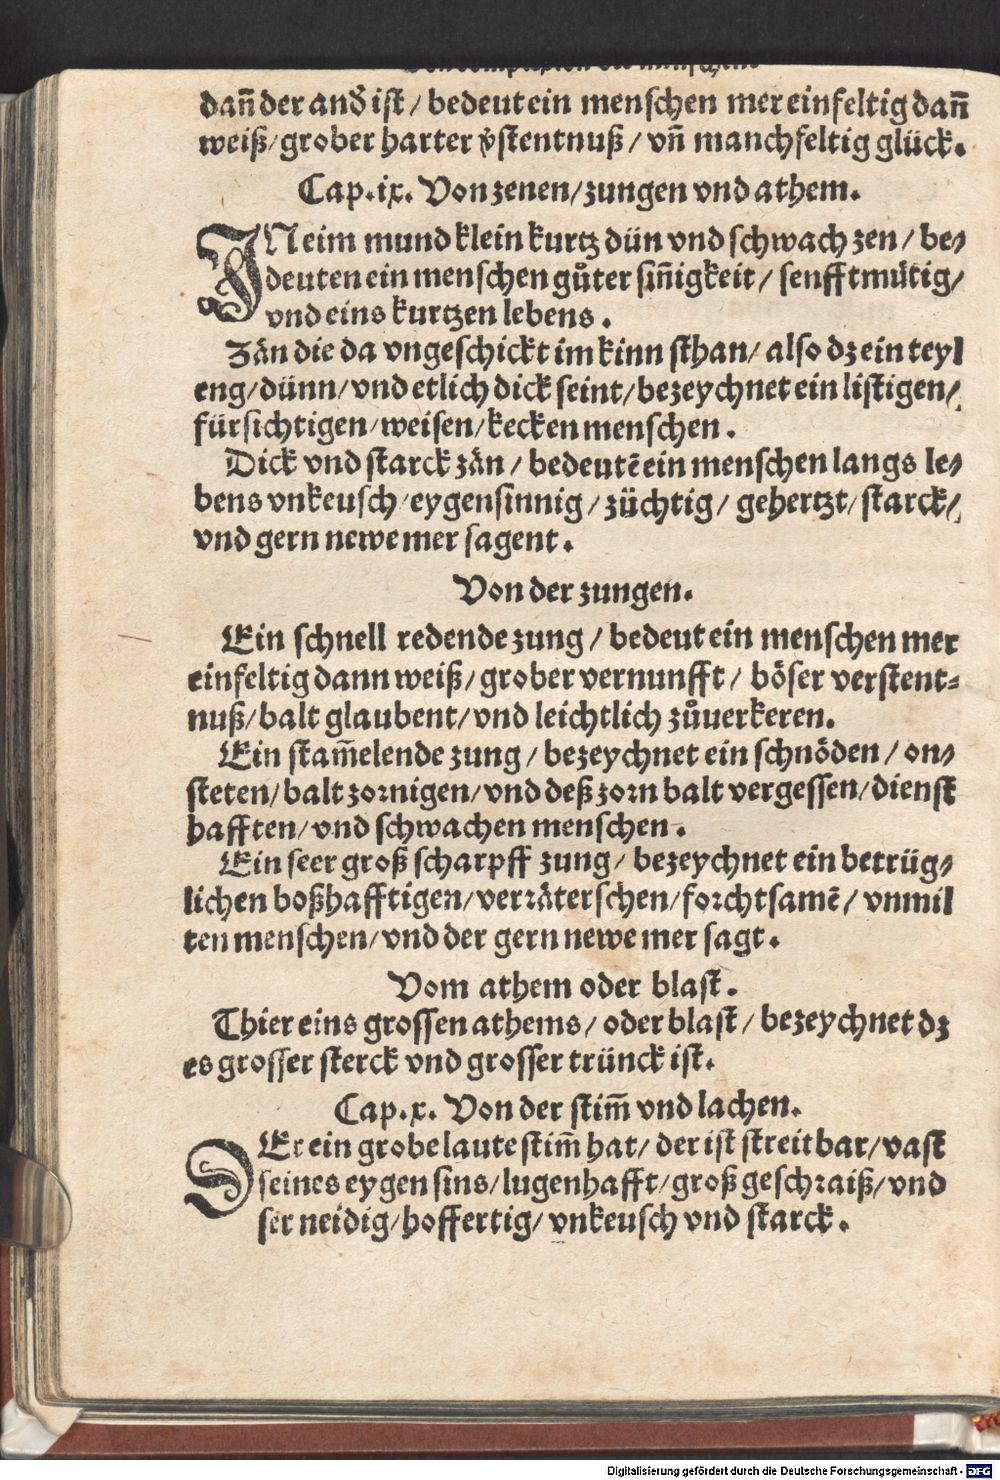 dañ der and ist / bedeut ein menschen mer einfeltig dañ
weiß / grober harter v̈stentnuß / vñ manchfeltig glück.
Cap. ix. Von zenen / zungen vnd athem.
IN eim mund klein kurtz dün vnd schwach zen / be⸗
deuten ein menschen gůter siñigkeit / senfftmütig /
vnd eins kurtzen lebens.
Zän die da vngeschickt im kinn sthan / also dz ein teyl
eng / dünn / vnd etlich dick seint / bezeychnet ein listigen /
fürsichtigen / weisen / kecken menschen.
Dick vnd starck zän / bedeutē ein menschen langs le⸗
bens vnkeusch / eygensinnig / züchtig / gehertzt / starck /
vnd gern newe mer sagent.
Von der zungen.
Ein schnell redende zung / bedeut ein menschen mer
einfeltig dann weiß / grober vernunfft / böser verstent⸗
nuß / balt glaubent / vnd leichtlich zůuerkeren.
Ein stam̃elende zung / bezeychnet ein schnöden / on⸗
steten / balt zornigen / vnd deß zorn balt vergessen / dienst
hafften / vnd schwachen menschen.
Ein seer groß scharpff zung / bezeychnet ein betrüg⸗
lichen boßhafftigen / verräterschen / forchtsamē / vnmil
ten menschen / vnd der gern newe mer sagt.
Vom athem oder blast.
Thier eins grossen athems / oder blast / bezeychnet dz
es grosser sterck vnd grosser trünck ist.
Cap. x. Von der stim̃ vnd lachen.
DEr ein grobe laute stim̃ hat / der ist streitbar / vast
seines eygen sins / lugenhafft / groß geschraiß / vnd
ser neidig / hoffertig / vnkeusch vnd starck.
Digitalisierung gefördert durch die Deutsche Forschungsgemeinschaft - DFG